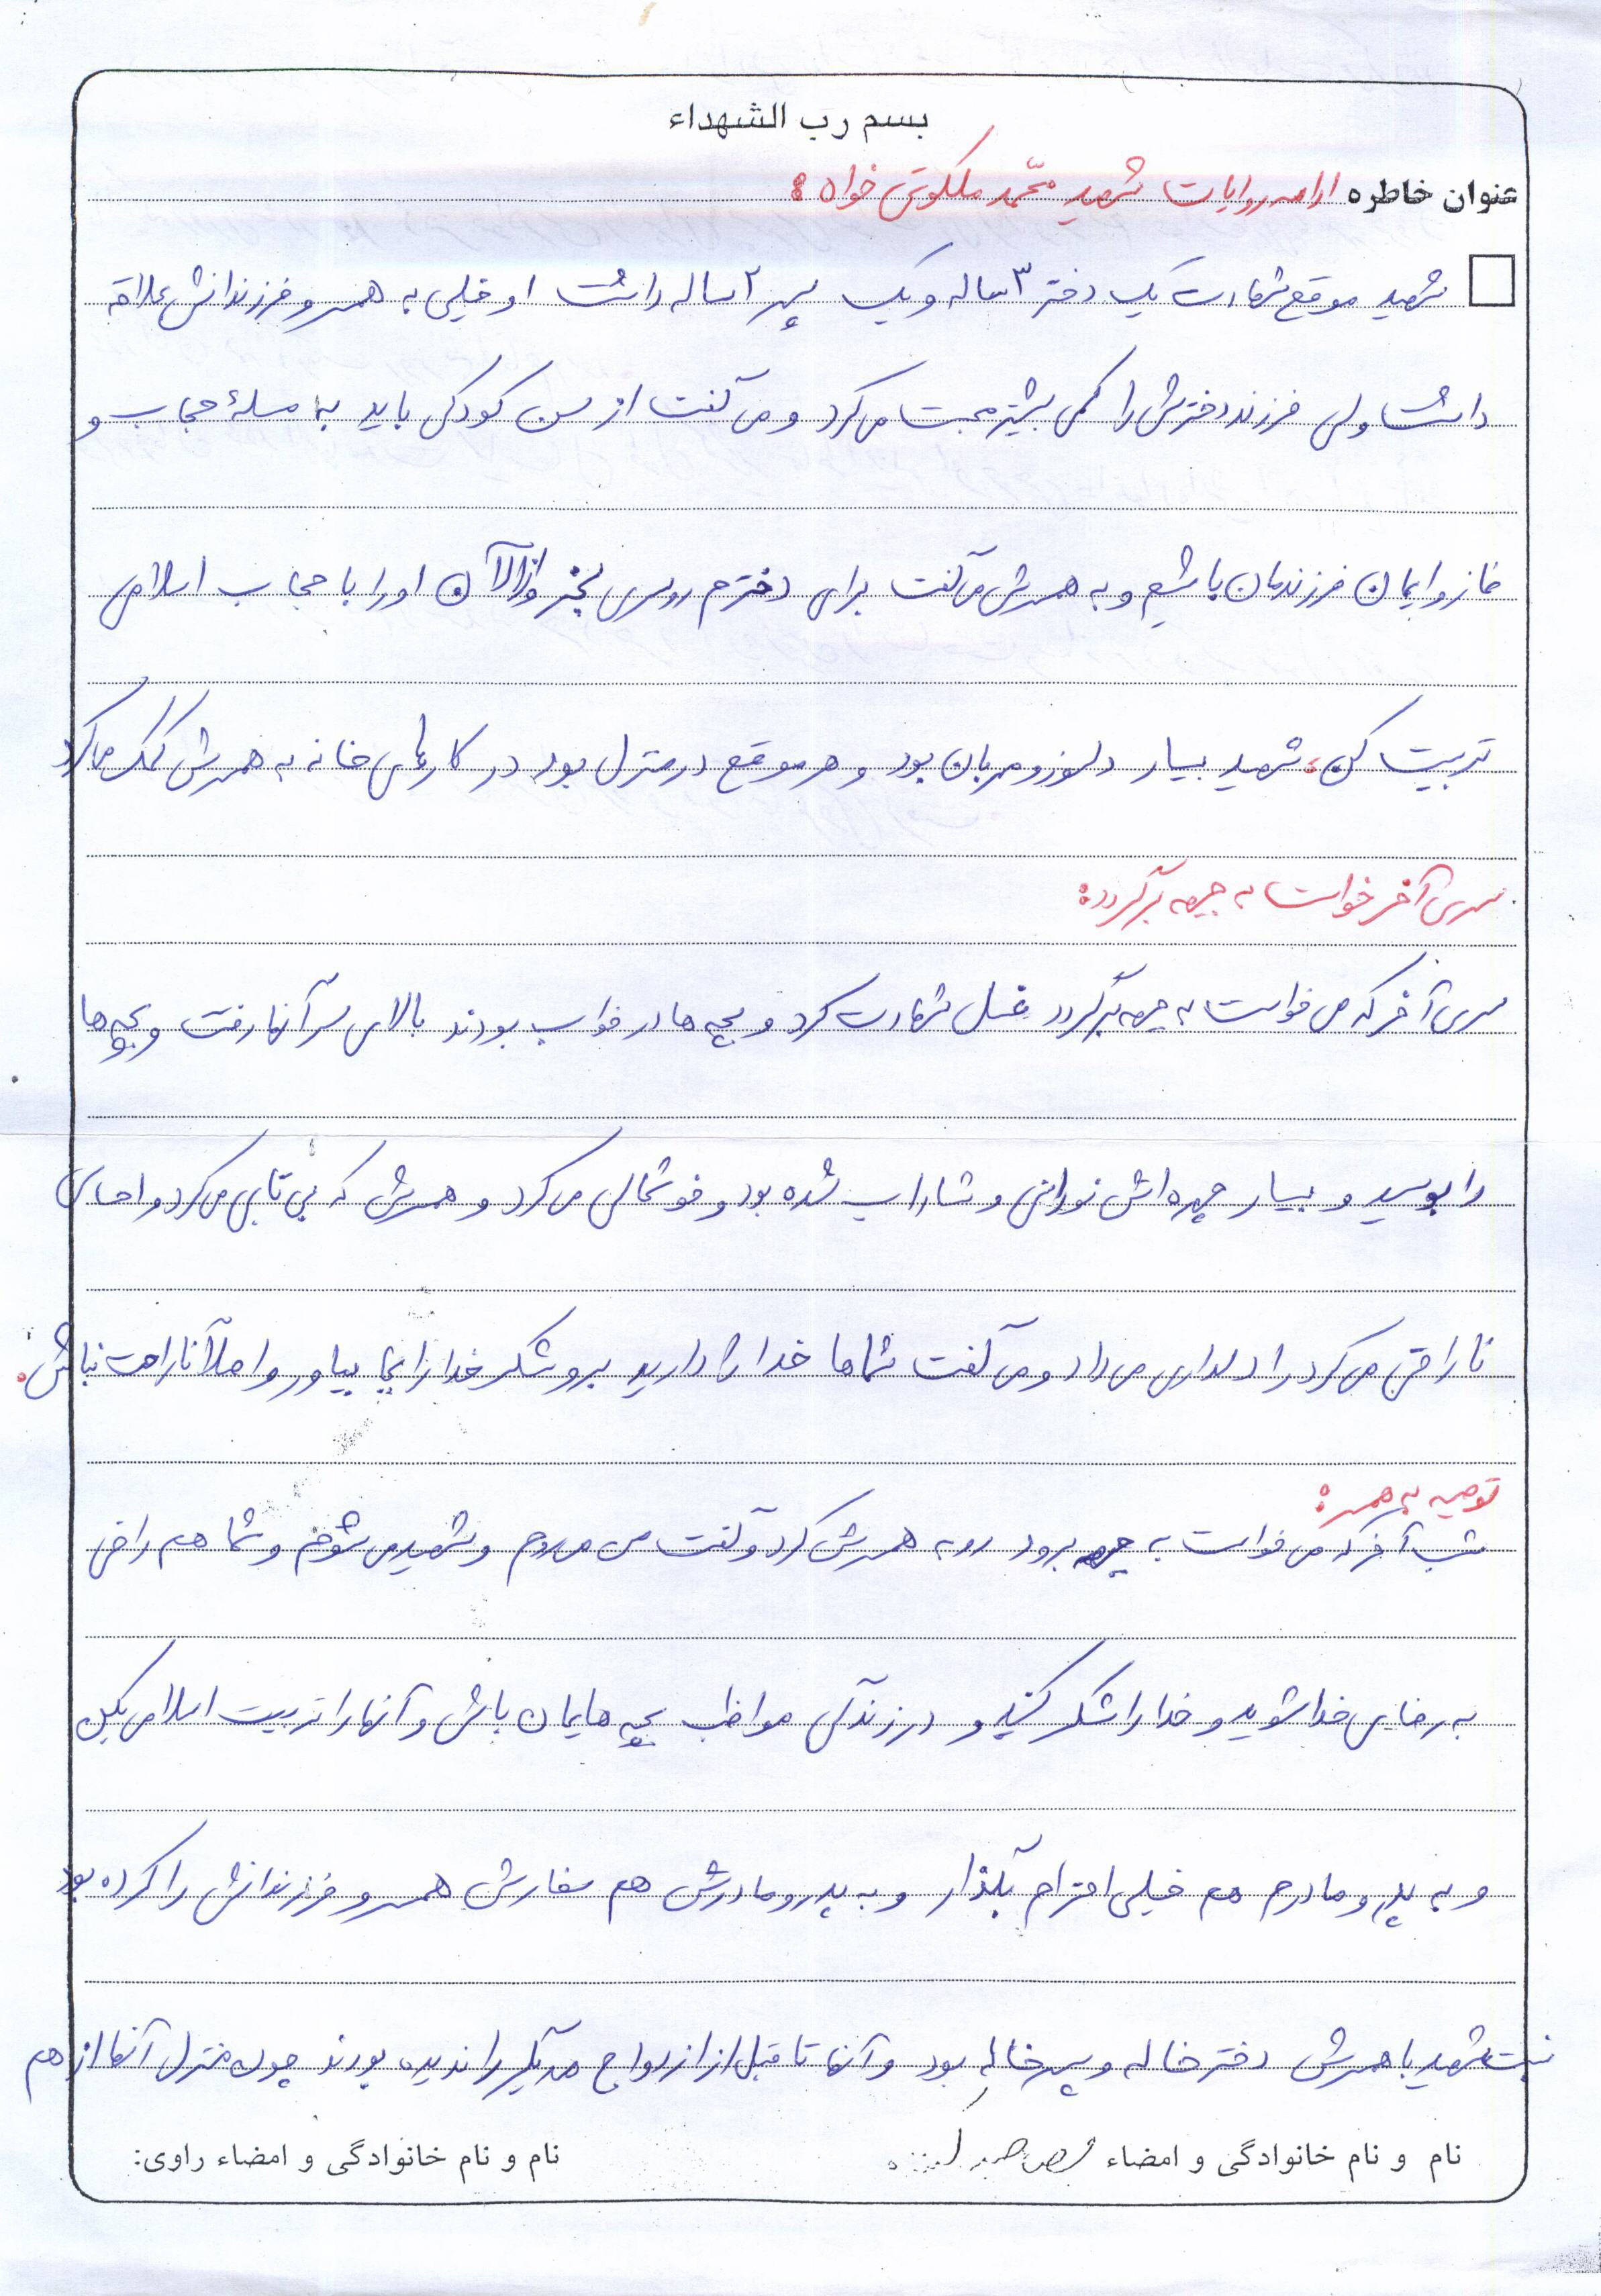 بسم رب الشهداء
عنوان خاطره ادامه روایات شهید محمّد ملکوتی خواه :
شهید موقع شهادت یک دختر ۳ ساله و یک پسر ۲ ساله داشت او خیلی به همسر و فرزندانش علاقه
داشت ولی فرزند دخترش را کمی بیشتر محبت می کرد و می گفت از سن کودکی باید به مسلۀ حجاب و
نماز و ایمان فرزندمان باشیم و به همسرش می گفت برای دخترم روسری بخر و از الآن او را با حجاب اسلامی
تربیت کن. شهید بسیار دلسوز و مهربان بود و هر موقع در منزل بود در کارهای خانه به همسرش کمک می کرد
سری آخر خواست به جبهه برگردد:
سری آخر که می خواست به جبهه برگردد غسل شهادت کرد و بچه ها در خواب بودند بالای سر آنها رفت و بچه ها
را بوسید و بسیار چهره اش نورانی و شاداب شده بود و خوشحالی می کرد و همسرش که بی تابی می کرد و احساس
ناراحتی می کرد را دلداری می داد و می گفت شماها خدا را دارید برو شکر خدا را بجا بیاور و اصلاً ناراحت نباش.
توصیه به همسر:
شب آخر که می خواست به جبهه برود رو به همسرش کرد و گفت من می روم و شهید می شوم و شما هم راضی
به رضای خدا شوید و خدا را شکر کنید و در زندگی مواظب بچه هایمان باش و آنها را تربیت اسلامی بکن
و به پدر و مادرم هم خیلی احترام بگذار و به پدر و مادرش هم سفارش همسر و فرزندانش را کرده بود
نسبت شهید با همسرش دختر خاله و پسر خاله بود و آنها تا قبل از ازدواج همدیگر را ندیده بودند چون منزل آنها از هم
نام و نام خانوادگی و امضاء
نام و نام خانوادگی و امضاء راوی: